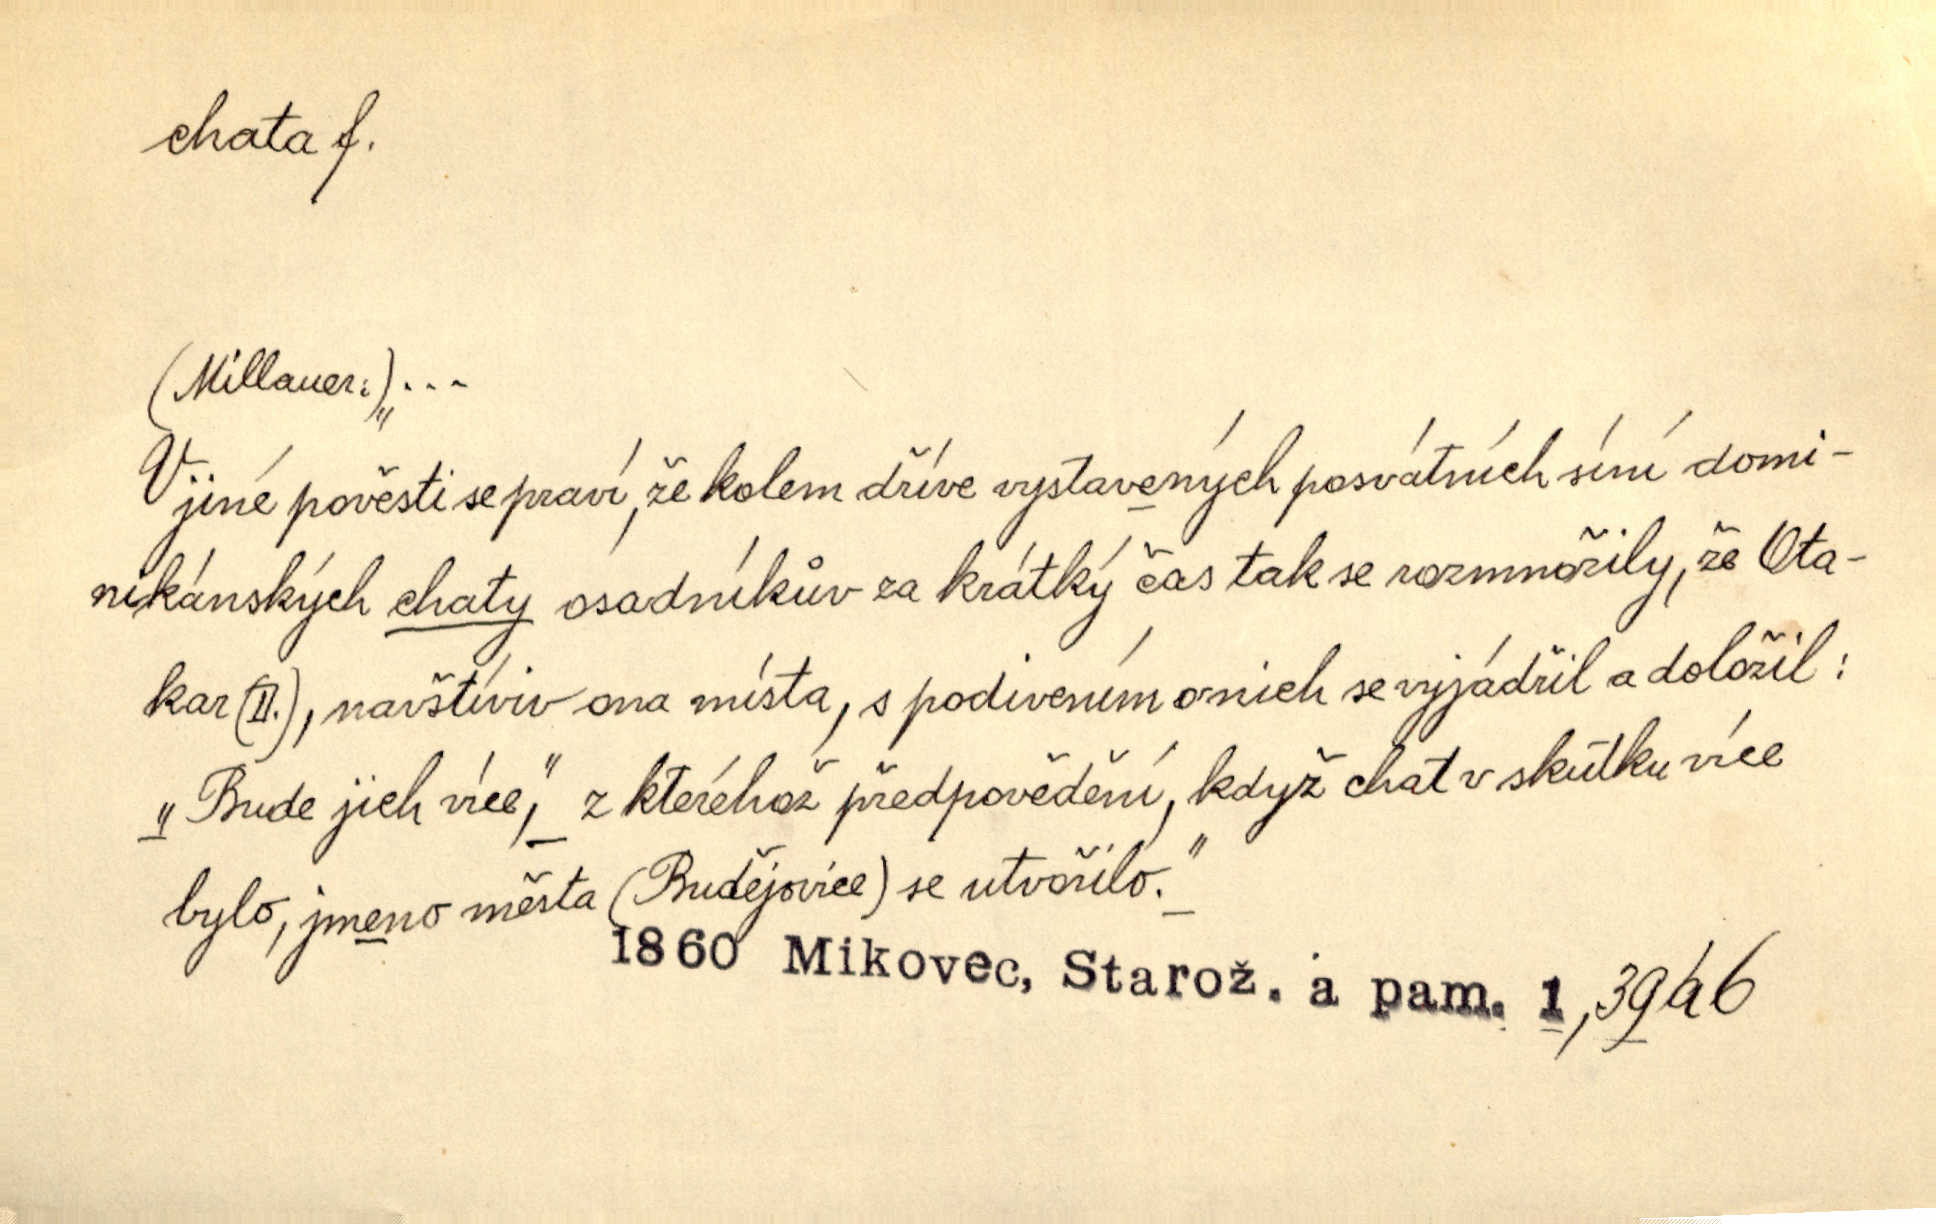 chata f.
(Millauer:) „...
V jiné pověsti se praví, že kolem dříve vystavených posvátních síní domi-
nikánských chaty osadníkův za krátký čas tak se rozmnožily, že Ota-
kar (II.), navštíviv ona místa, s podivením o nich se vyjádřil a doložil:
„Bude jich více," z kteréhož předpovědění, když chat v skutku více
bylo, jmeno města (Budějovice) se utvořilo."
1860 Mikovec, Starož. a pam. 1, 39